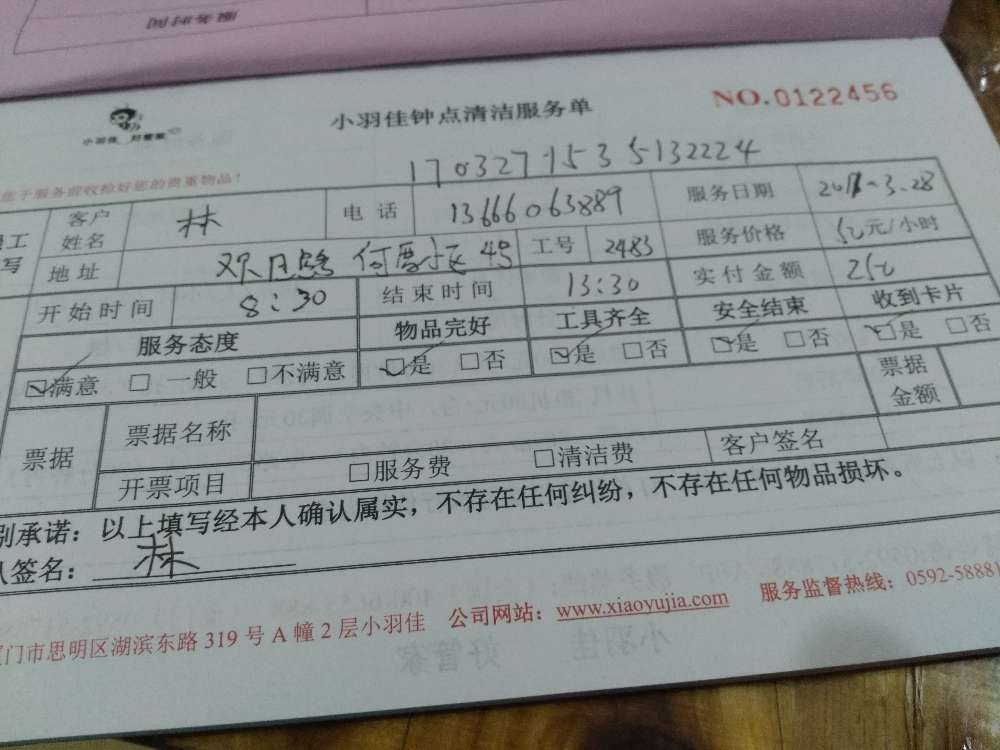 服务时间
小羽佳 好管家
小羽佳钟点清洁服务单
NO.0122456
17032715355132224
于服务前收捡好您的贵重物品！
客户姓名 林 电话 13666063889 服务日期 3.28
地址 何厝 45 工号 2485 服务价格 50元/小时
开始时间 8:30 结束时间 13:30 实付金额 250
服务态度 物品完好 工具齐全 安全结束 收到卡片
☑满意 □一般 □不满意 ☑是 □否 ☑是 □否 ☑是 □否 ☑是 □否
票据 票据名称 票据金额
开票项目 □服务费 □清洁费 客户签名
别承诺：以上填写经本人确认属实，不存在任何纠纷，不存在任何物品损坏。
签名：林
门市思明区湖滨东路319号A幢2层小羽佳 公司网站：www.xiaoyujia.com 服务监督热线：0592-58881